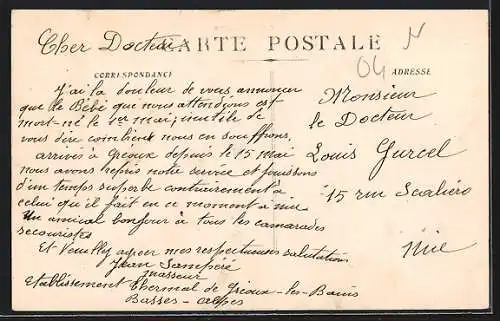 Cher Docteur
CARTE POSTALE
CORRESPONDANCE
ADRESSE
04
N
J'ai la douleur de vous annoncer
que le Bébé que nous attendions est
mort-né le 1er mai; inutile de
vous dire combien nous en souffrons,
arrivés à Gréoux depuis le 15 mai
nous avons repris notre service et jouissons
d'un temps superbe contrairement à
celui qu'il fait en ce moment à nice
Un amical bonjour à tous les camarades
secouristes
Et Veuillez agréer mes respectueuses salutations
Jean Sampéré
masseur
Etablissement Thermal de Gréoux-les-Bains
Basses-alpes
Monsieur
le Docteur
Louis Gurcel
15 rue Scaliéro
Nice